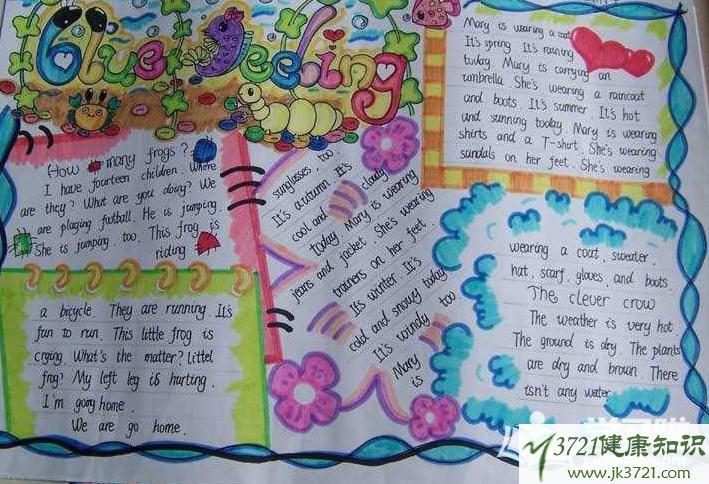 Blue Feeling
How many frogs?
I have fourteen children. Where
are they? What are you doing? We
are playing football. He is jumping.
She is jumping. too. This frog is
riding
a bicycle. They are running It's
fun to run. This little frog is
crying. What's the matter? Littel
frog? My left leg is hurting.
I'm gong home.
We are go home.
Mary is wearing a coat
It's spring It's raining
today. Mary is carrying an
umbrella. She's wearing a raincoat
and boots. It's summer. It's hot
and sunning today. Mary is wearing
shirts and a T-shirt. She's wearing
sandals on her feet. She's wearing
sunglasses, too.
It's autumn. It's cloudy
cool and
today Mary is wearing
jeans and jacket. She's wearing
trainers on her feet
It's winter. It's
cold and snowy today
It's windy too
Mary is
wearing a coat, sweater.
hat, scarf, gloves, and boots.
The clever crow
The weather is very hot.
The ground is dry. The plants
are dry and brown. There
isn't any water.
3721健康知识
www.jk3721.com